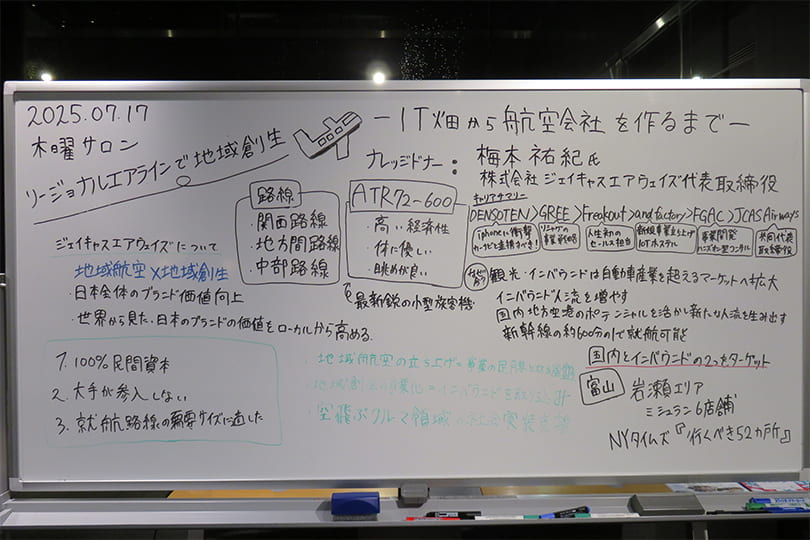 2025.07.17
木曜サロン
リージョナルエアラインで地域創生
ーIT畑から航空会社を作るまでー
ナレッジドナー：梅本祐紀氏
株式会社ジェイキャスエアウェイズ代表取締役
キャリアサマリー
DENSOTEN>GREE>Freakout>and factory>FGAC>JCAS Airways
iphoneに衝撃
カーナビを
人生初の
セールス担当
新規事業立ち上げ
IoTホステル
事業開発
ハンズオン型コンサル
共同代表
取締役
路線
・関西路線
・地方間路線
・中部路線
ATR72-600
・高い経済性
・体に優しい
・眺めが良い
最新鋭の小型旅客機
ジェイキャスエアウェイズについて
地域航空×地域創生
・日本全体のブランド価値向上
・世界から見た、日本のブランドの価値をローカルから高める
1. 100%民間資本
2. 大手が参入しない
3. 就航路線の需要サイズに適した
・地域航空の立ち上げ=事業の
・地域創生の事業化=インバウンドを
・空飛ぶクルマ領域の社会実装
観光・インバウンドは自動車産業を超えるマーケットへ拡大
インバウンド人流を増やす
国内地方空港のポテンシャルを活かし新たな人流を生み出す
新幹線の約600分の1で就航可能
国内とインバウンドの2つをターゲット
富山
岩瀬エリア
ミシュラン6店舗
NYタイムズ『行くべき52カ所』